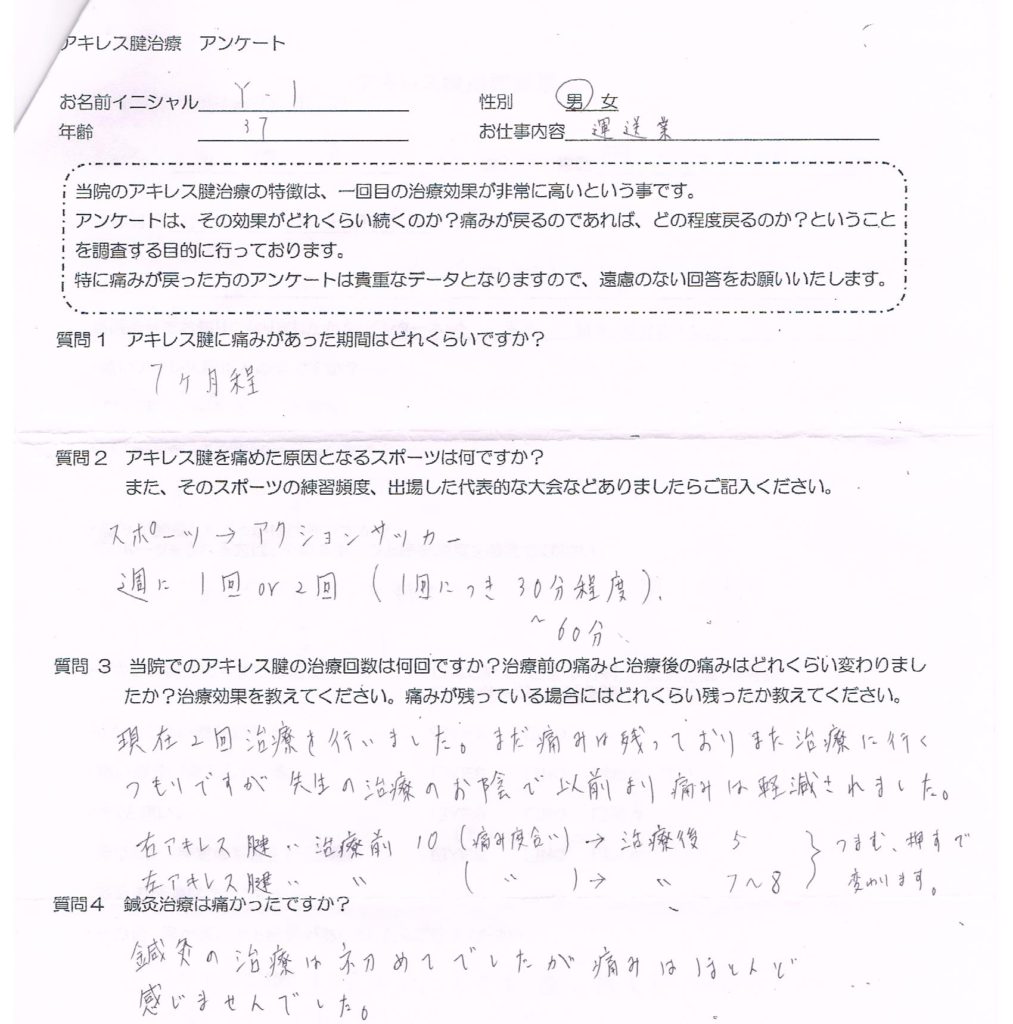 アキレス腱治療 アンケート
お名前イニシャル Y・I 性別 男 女
年齢 37 お仕事内容 運送業
当院のアキレス腱治療の特徴は、一回目の治療効果が非常に高いという事です。
アンケートは、その効果がどれくらい続くのか？痛みが戻るのであれば、どの程度戻るのか？ということ
を調査する目的に行っております。
特に痛みが戻った方のアンケートは貴重なデータとなりますので、遠慮のない回答をお願いいたします。
質問１ アキレス腱に痛みがあった期間はどれくらいですか？
7ヶ月程
質問２ アキレス腱を痛めた原因となるスポーツは何ですか？
また、そのスポーツの練習頻度、出場した代表的な大会などありましたらご記入ください。
スポーツ→アクションサッカー
週に 1回 or 2回 (1回につき 30分程度)、
～60分、
質問 3 当院でのアキレス腱の治療回数は何回ですか？治療前の痛みと治療後の痛みはどれくらい変わりまし
たか？治療効果を教えてください。痛みが残っている場合にはどれくらい残ったか教えてください。
現在2回治療を行いました。まだ痛みは残っておりまた治療に行く
つもりですが先生の治療のお陰で以前より痛みは軽減されました。
右アキレス腱 〃 治療前 10 (痛み度合い) → 治療後 5 つまむ、押すで
左アキレス腱 〃 〃 ( 〃 ) → 〃 7～8 変わります。
質問４ 鍼灸治療は痛かったですか？
鍼灸の治療は初めてでしたが痛みはほとんど
感じませんでした。